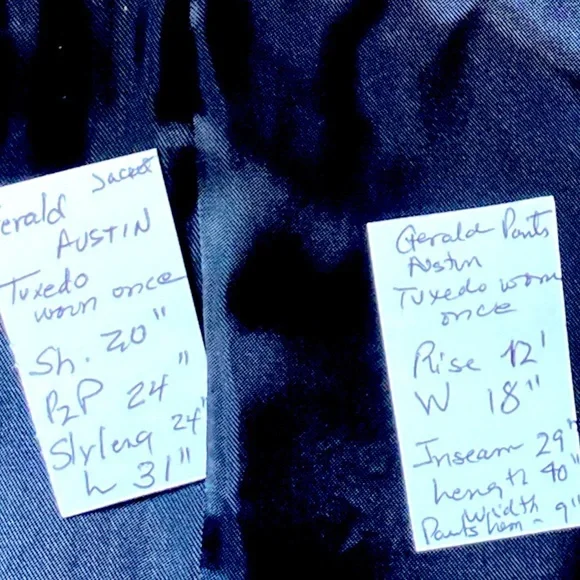 Jacket
erald
AUSTIN
Tuxedo
worn once
Sh. 20"
P2P 24"
Slvleng 24"
L 31"
Gerald Pants
Austin
Tuxedo worn
once
Rise 12'
W 18"
Inseam 29"
Length 40"
Width
Pants hem - 9"